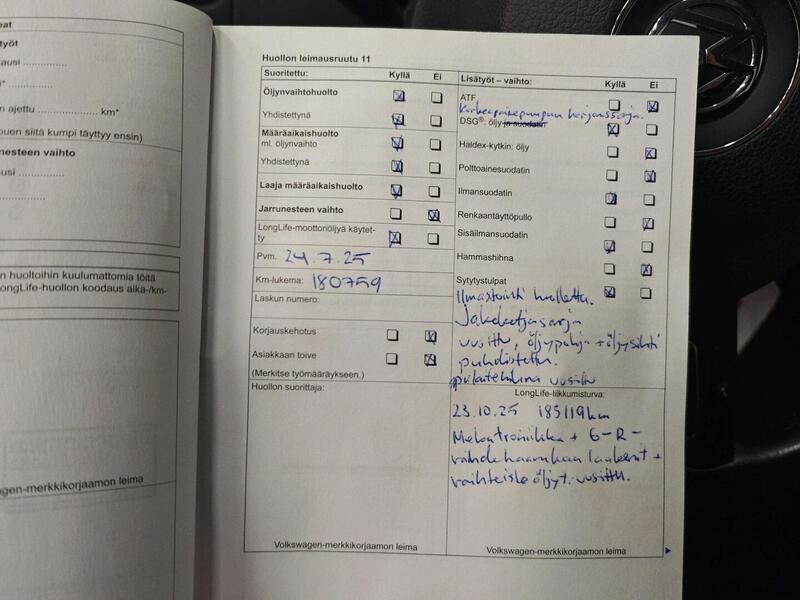 at
työt
ausi ..............
i* ................
n ajettu ................ km*
puen siitä kumpi täyttyy ensin)
nesteen vaihto
usi ..............
n huoltoihin kuulumattomia töitä
ongLife-huollon koodaus aika-/km-
agen-merkkikorjaamon leima
Huollon leimausruutu 11
Suoritettu: Kyllä Ei
Öljynvaihtohuolto
Yhdistettynä
Määräaikaishuolto
ml. öljynvaihto
Yhdistettynä
Laaja määräaikaishuolto
Jarrunesteen vaihto
LongLife-moottoriöljyä käytet-
ty
Pvm. 24.7.25
Km-lukema: 180759
Laskun numero:
Korjauskehotus
Asiakkaan toive
(Merkitse työmääräykseen.)
Huollon suorittaja:
Volkswagen-merkkikorjaamon leima
Lisätyöt – vaihto: Kyllä Ei
ATF
Korkeapainepumpun korjaussarja.
DSG®: öljy ja suodatin
Haldex-kytkin: öljy
Polttoainesuodatin
Ilmansuodatin
Renkaantäyttöpullo
Sisäilmansuodatin
Hammashihna
Sytytystulpat
Ilmastointi huollettu.
Jakoketjusarja
uusittu, öljypohja + öljysihti
puhdistettu.
uusittu
LongLife-liikkumisturva:
23.10.25 185119km
+ 6-R-
vaihdehaarukan laakerit +
vaihteisto öljyt. uusittu.
Volkswagen-merkkikorjaamon leima